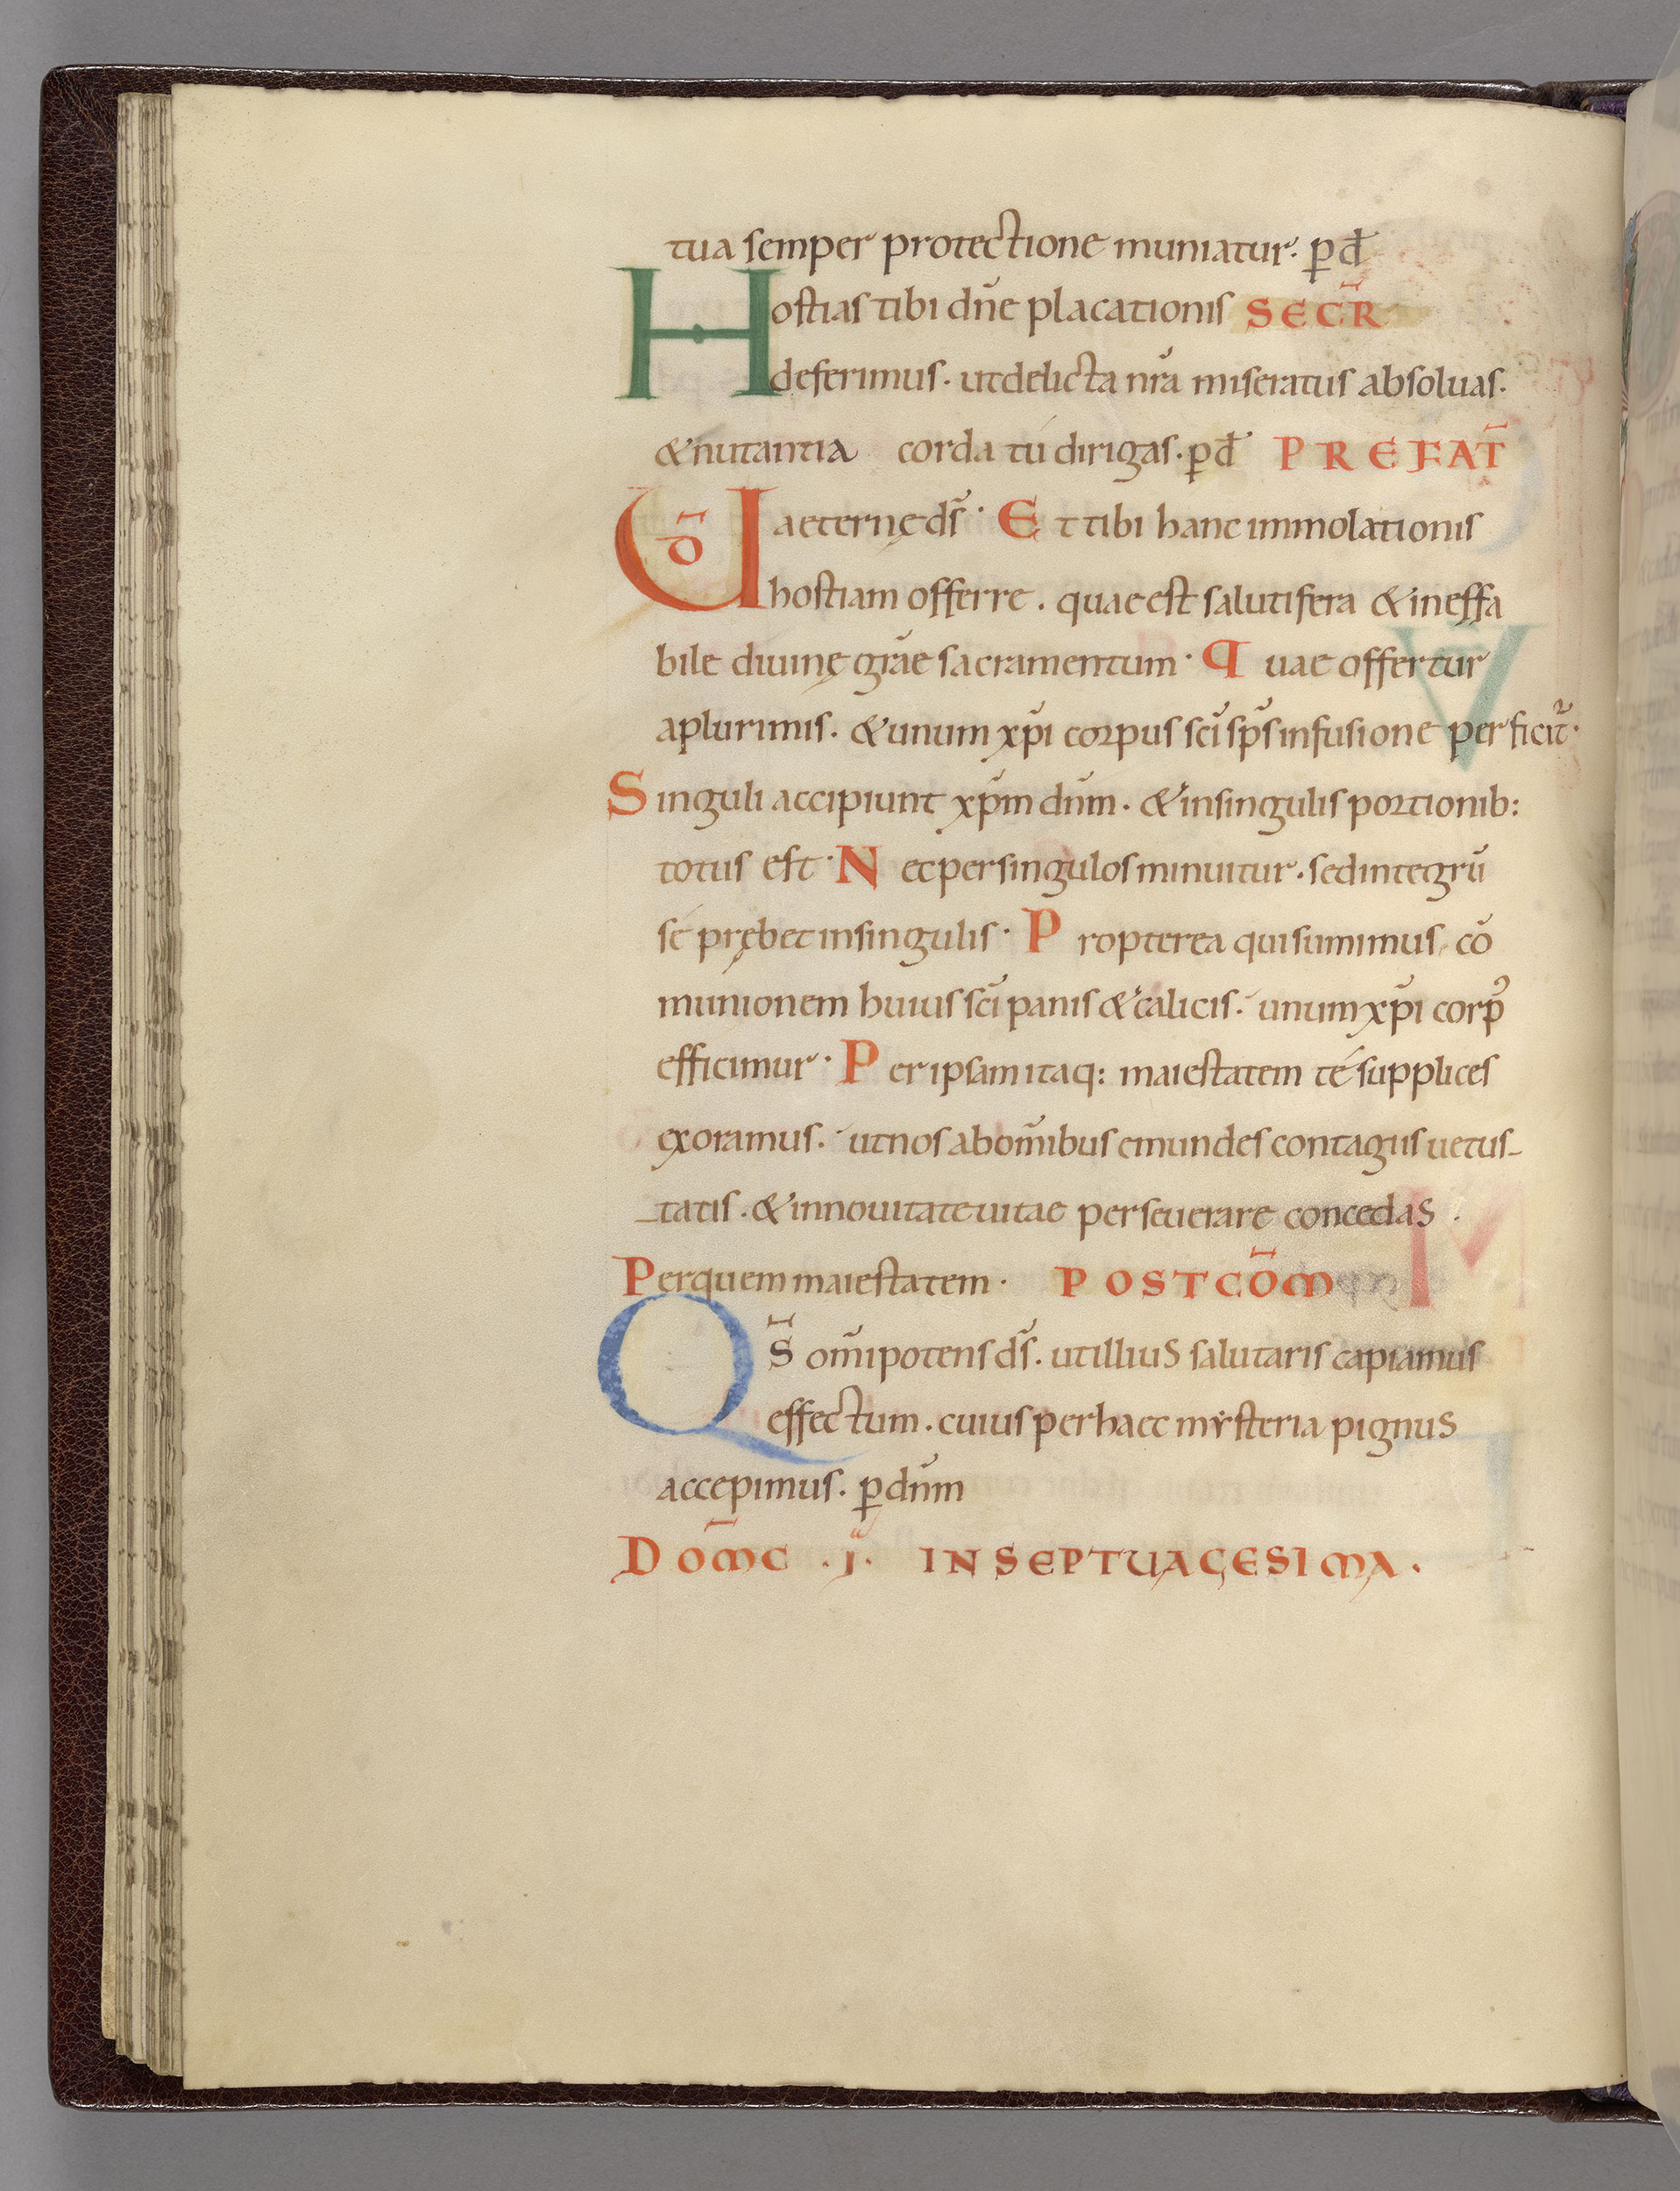 tua semper protectione muniatur. p̱ đ
Hostias tibi dn̄e placationis SECR̄
deferimus. ut delicta nr̄a miseratus absoluas.
& nutantia corda tú dirigas. p̱ đ PREFAT̄
UŌ aeternę ds̄. Et tibi hanc immolationis
hostiam offerre. quae est salutifera & ineffa
bile diuinę grāe sacramentum. Quae offertur
a plurimis. & unum xp̄i corpus sc̄i sp̄s infusione perficit᷑.
Singuli accipiunt xp̄m dn̄m. & in singulis portionib:
totus est. Nec per singulos minuitur. sed integrū
sé prębet in singulis. Propterea qui sumimus cō
munionem huius sc̄i panis & calicis. unum xp̄i corpꝰ
efficimur. Per ipsam itaq: maiestatem té supplices
exoramus. ut nos ab om̄ibus emundes contagiis uetus-
-tatis. & in nouitate uitae perseuerare concedas.
Per quem maiestatem. POSTCŌM
QS̄ om̄ipotens ds̄. ut illius salutaris capiamus
effectum. cuius per haec mẏsteria pignus
accepimus. p̱ dn̄m
DOM̄C .I. IN SEPTUAGESIMA.